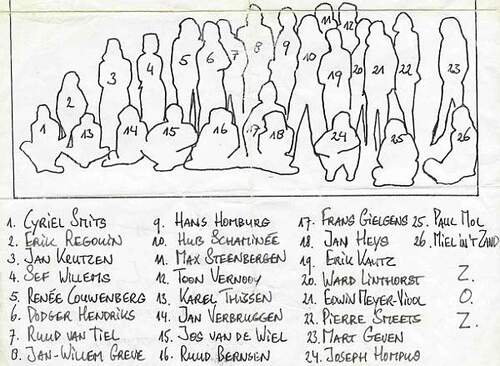 11 12
8 9 10
5 6 7 19 20 21 22 23
3 4
2
1 13 14 15 16 17 18 24 25 26
1. Cyriel Smits
2. Erik Regouin
3. Jan Krutzen
4. Sef Willems
5. Renée Couwenberg
6. Dodger Hendriks
7. Ruud van Tiel
8. Jan-Willem Greve
9. Hans Homburg
10. Hub Schaminée
11. Max Steenbergen
12. Toon Vernooy
13. Karel Thijssen
14. Jan Verbruggen
15. Jos van de Wiel
16. Ruud Bernsen
17. Frans Gielgens
18. Jan Heys
19. Erik Kautz
20. Ward Linthorst
21. Edwin Meyer-Viol
22. Pierre Smeets
23. Mart Geven
24. Joseph Hompus
25. Paul Mol
26. Miel in't Zand
Z.
O.
Z.